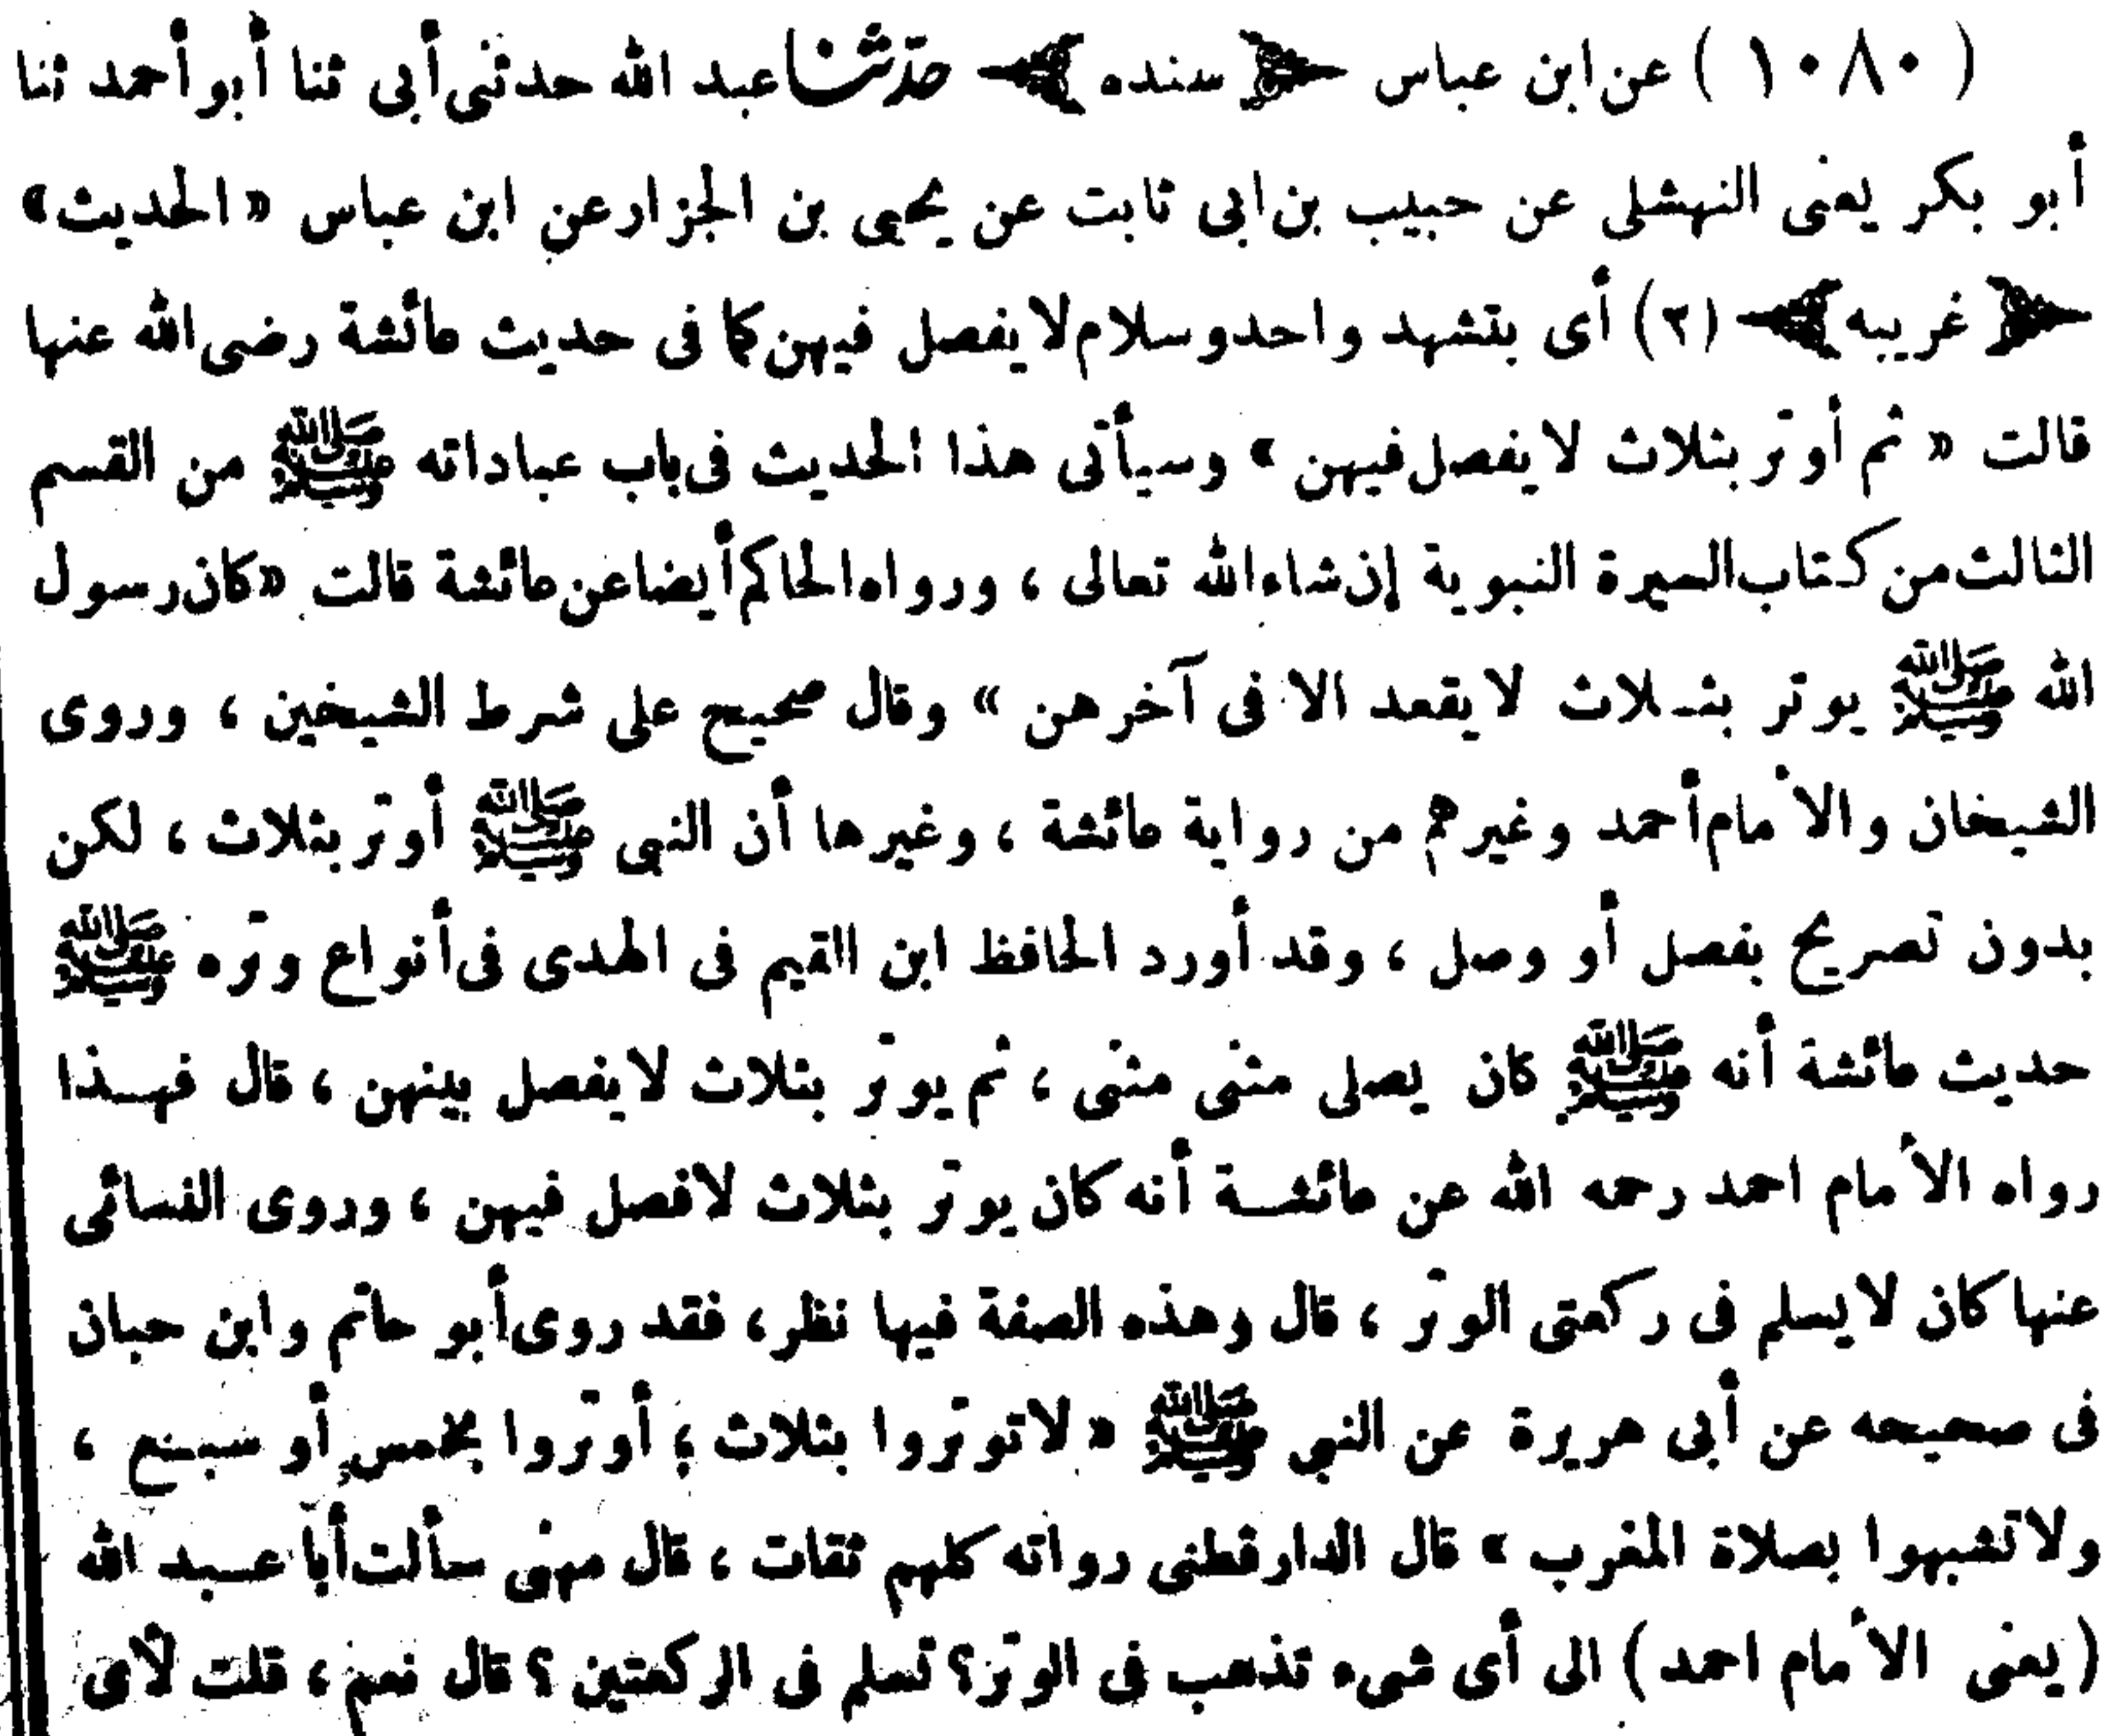 ( ١٠٨٠ ) عن ابن عباس ﴿ سنده ﴾ حدثنا عبد الله حدثنى أبى ثنا أبو أحمد ثنا
أبو بكر يعنى النهشلى عن حبيب بن ابى ثابت عن يحيى بن الجزار عن ابن عباس «الحديث»
﴿ غريبه ﴾ (٢) أى بتشهد واحد وسلام لا يفصل فيهن كما فى حديث عائشة رضى الله عنها
قالت « ثم أوتر بثلاث لا يفصل فيهن » وسيأتى هذا الحديث فى باب عباداته ﷺ من القسم
الثالث من كتاب السيرة النبوية إن شاء الله تعالى ، ورواه الحاكم أيضا عن عائشة قالت «كان رسول
الله ﷺ يوتر بثلاث لا يقعد الا فى آخرهن » وقال صحيح على شرط الشيخين ، وروى
الشيخان والأمام أحمد وغيرهم من رواية عائشة ، وغيرها أن النبى ﷺ أوتر بثلاث ، لكن
بدون تصريح بفصل أو وصل ، وقد أورد الحافظ ابن القيم فى الهدى فى أنواع وتره ﷺ
حديث عائشة أنه ﷺ كان يصلى مثنى مثنى ، ثم يوتر بثلاث لا يفصل بينهن ، قال فهذا
رواه الأمام احمد رحمه الله عن عائشة أنه كان يوتر بثلاث لا فصل فيهن ، وروى النسائى
عنها كان لا يسلم فى ركعتى الوتر ، قال وهذه الصفة فيها نظر ، فقد روى أبو حاتم وابن حبان
فى صحيحه عن أبى هريرة عن النبى ﷺ « لا توتروا بثلاث ؛ أوتروا بخمس أو سبع ،
ولا تشبهوا بصلاة المغرب » قال الدارقطنى رواته كلهم ثقات ، قال مهنى سألت أبا عبد الله
(يعنى الأمام احمد) الى أى شىء تذهب فى الوتر؟ تسلم فى الركعتين ؟ قال نعم ، قلت لأى